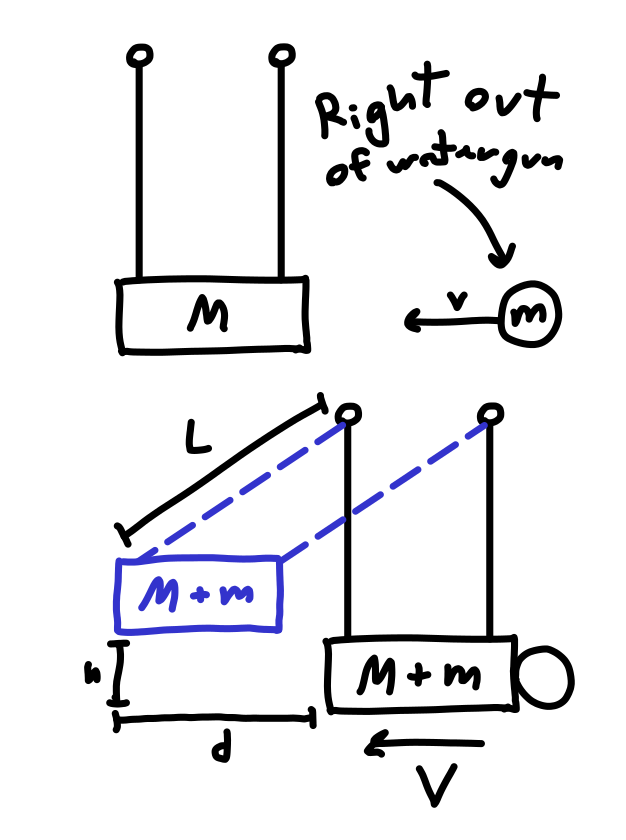 Right out
of watergun
M
v
m
L
M + m
h
d
M + m
V